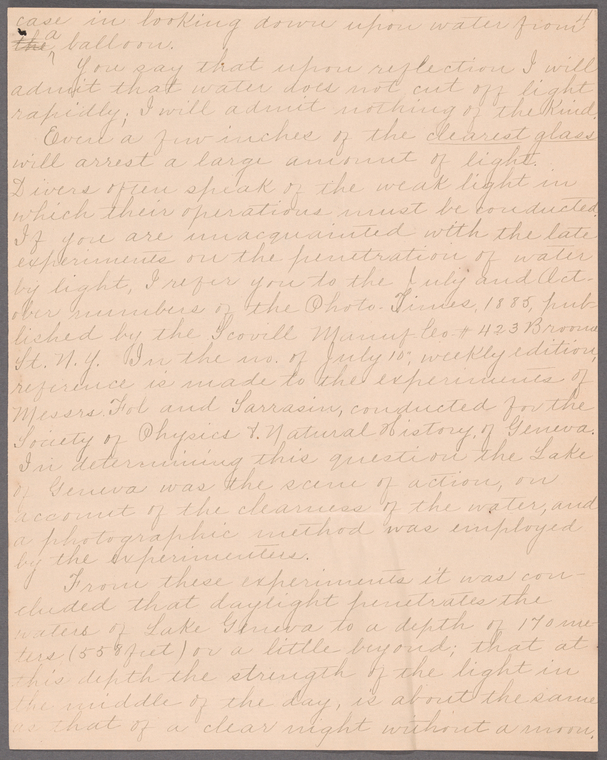 4
case in looking down upon water from
the a balloon.
You say that upon reflection I will
admit that water does not cut off light
rapidly; I will admit nothing of the kind.
Even a few inches of the clearest glass
will arrest a large amount of light.
Divers often speak of the weak light in
which their operations must be conducted.
If you are unacquainted with the late
experiments on the penetration of water
by light, I refer you to the July and Oct-
ober numbers of the Photo-Times, 1885, pub-
lished by the Scovill Manuf Co # 423 Broome
St. N.Y. In the no. of July 10, weekly edition,
reference is made to the experiments of
Messrs. Fol and Sarrasin, conducted for the
Society of Physics & Natural History, of Geneva.
In determining this question the Lake
of Geneva was the scene of action, on
account of the clearness of the water, and
a photographic method was employed
by the experimenters.
From these experiments it was con-
cluded that daylight penetrates the
waters of Lake Geneva to a depth of 170 me-
ters, (558 feet) or a little beyond; that at
this depth the strength of the light in
the middle of the day, is about the same
as that of a clear night without a moon.